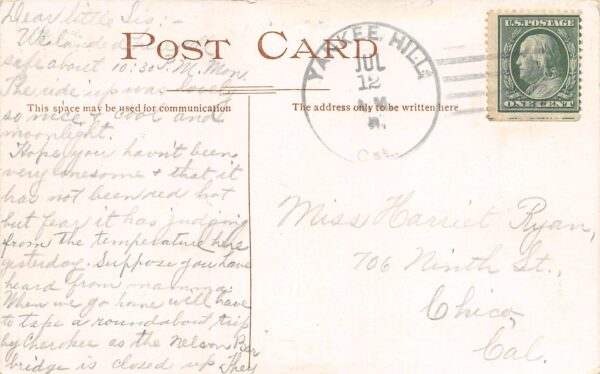 Dear little Sis:-
We landed
safe about 10:30 P.M. Mon.
The ride up was lovely
so nice & cool and
moonlight.
Hope you havn't been
very lonesome & that it
has not been red hot
but fear it has judging
from the temperature here
yesterday. Suppose you have
heard from mamma.
When we go home will have
to tape a roundabout trip
by Cherokee as the Nelson Bar
bridge is closed up. They
POST CARD
This space may be used for communication
The address only to be written here
YANKEE HILL
JUL
12
CAL.
U.S. POSTAGE
ONE CENT
Miss Harriet Ryan,
706 Ninth St.,
Chico,
Cal.